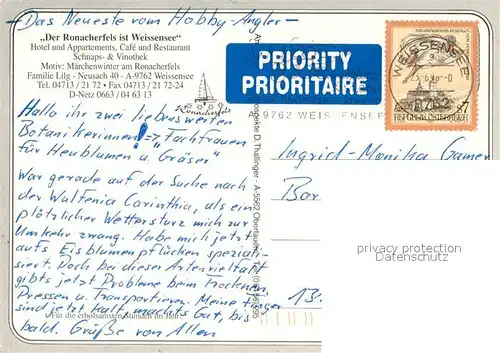 - Das Neueste vom Hobby-Angler -
„Der Ronacherfels ist Weissensee“
Hotel und Appartements, Café und Restaurant
Schnaps- & Vinothek
Motiv: Märchenwinter am Ronacherfels
Familie Lilg - Neusach 40 - A-9762 Weissensee
Tel. 04713 / 21 72 • Fax 04713 / 21 72-24
D-Netz 0663 / 04 63 13
Ronacherfels
PRIORITY
PRIORITAIRE
A-9762 WEISSENSEE
WEISSENSEE
9762
REPUBLIK ÖSTERREICH
S7
Hallo ihr zwei liebenswerten
Botanikerinnen! => "Fachfrauen
für Heublumen u Gräser"
War gerade auf der Suche nach
der Wulfenia Carinthia, als ein
plötzlicher Wettersturz mich zur
Umkehr zwang. Habe mich jetzt
aufs Eisblumenpflücken speziali-
siert. Doch bei dieser Artenvielfalt
gibts jetzt Probleme beim Trocknen,
Pressen u. Transportieren. Meine Finger
sind jetzt kalt, machts Gut, bis
bald. Grüße von Allen
Für die erholsamsten Stunden im Jahr
D. Thallinger - A-5562 Obertauern
Ingrid-Monika Gamer
Bar
13.
privacy protection
Datenschutz